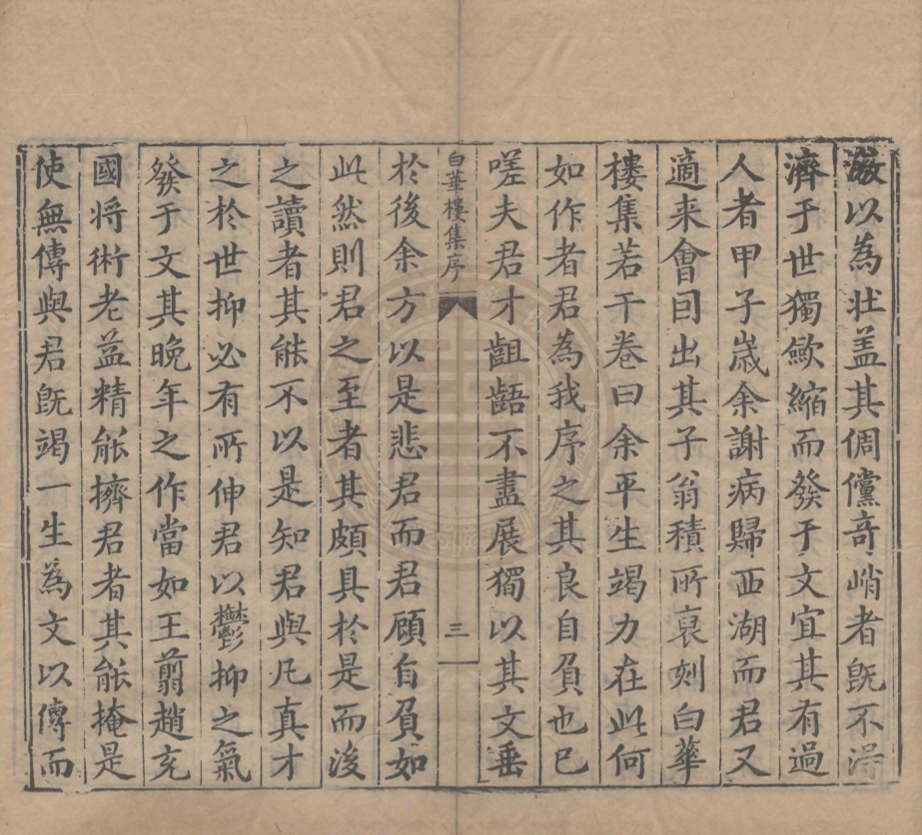 以為壯盖其倜儻奇峭者既不得
濟于世獨歛縮而發于文宜其有過
人者甲子歲余謝病歸西湖而君又
適来會因出其子翁積所裒刻白華
樓集若干卷曰余平生竭力在此何
如作者君為我序之其良自負也已
嗟夫君才齟齬不盡展獨以其文垂
白華樓集序
三
於後余方以是悲君而君顧自負如
此然則君之至者其頗具於是而後
之讀者其能不以是知君與凡真才
之於世抑必有所伸君以鬱抑之氣
發于文其晚年之作當如王翦趙充
國将術老益精能擠君者其能掩是
使無傳與君既竭一生為文以傳而